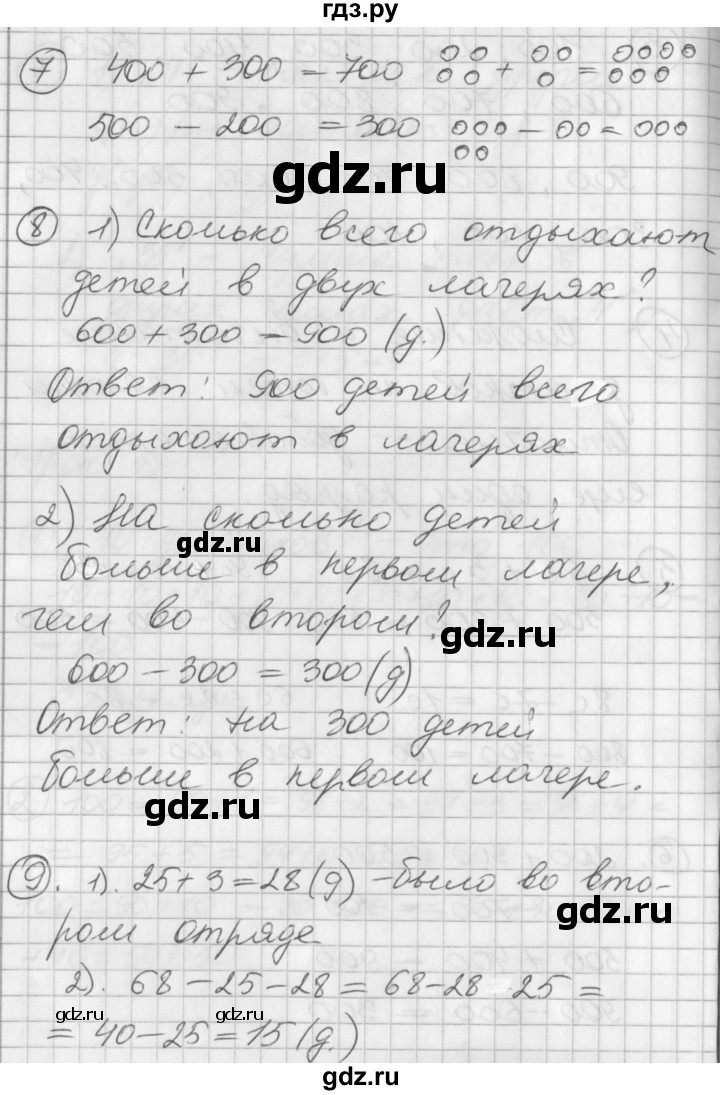 гдз.ру
7 400 + 300 = 700 оо оо + оо о = оооо ооо
500 - 200 = 300 ооо оо - оо = ооо
gdz.ru
8 1) Сколько всего отдыхают
детей в двух лагерях?
600 + 300 = 900 (д.)
Ответ: 900 детей всего
отдыхают в лагерях
2) На сколько детей
gdz.ru
больше в первом лагере,
чем во втором?
gdz.ru
600 - 300 = 300 (д)
Ответ: на 300 детей
больше в первом лагере.
gdz.ru
9. 1). 25 + 3 = 28 (д) - было во вто-
gdz.ru
ром отряде
2). 68 - 25 - 28 = 68 - 28 25 =
gdz.ru gdz.ru
= 40 - 25 = 15 (д.)
gdz.ru
gdz.ru